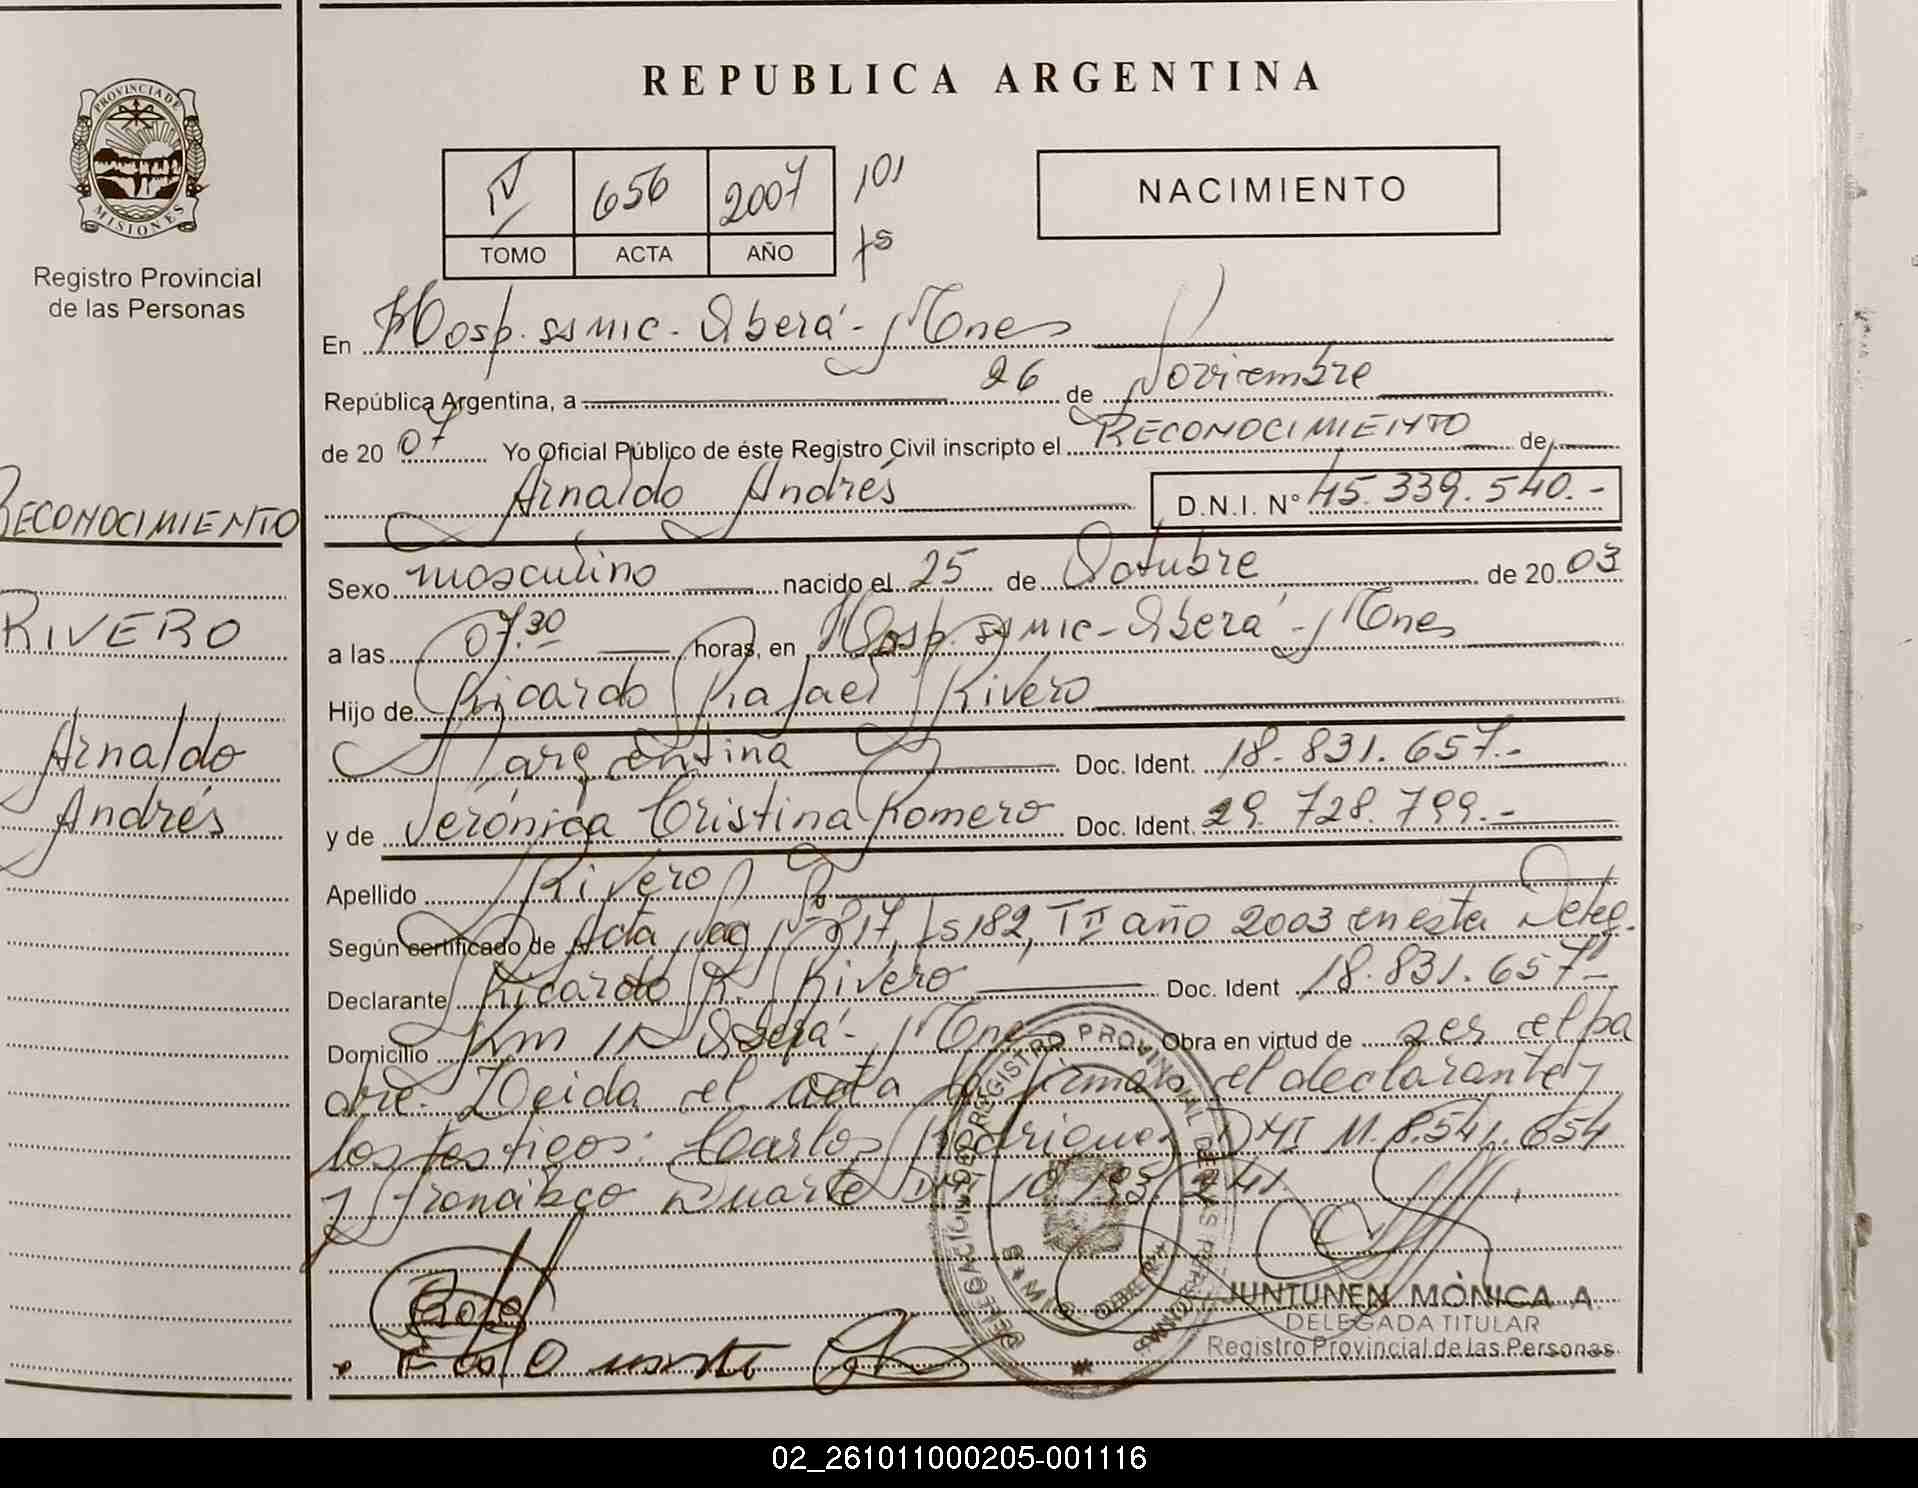 REPUBLICA ARGENTINA
PROVINCIA DE
MISIONES
Registro Provincial
de las Personas
IV 656 2007 101
TOMO ACTA AÑO fs
NACIMIENTO
En Hosp. ssmic - Oberá - Mnes
República Argentina, a 26 de Noviembre
de 20 07 Yo Oficial Público de éste Registro Civil inscripto el RECONOCIMIENTO de
Arnaldo Andrés D.N.I. N° 45.339.540.-
RECONOCIMIENTO
RIVERO
Arnaldo
Andrés
Sexo masculino nacido el 25 de Octubre de 20 03
a las 07.30 horas, en Hosp. ssmic - Oberá - Mnes
Hijo de Ricardo Rafael Rivero
argentina Doc. Ident. 18.831.657.-
y de Verónica Cristina Romero Doc. Ident. 29.728.799.-
Apellido Rivero
Según certificado de Acta Nac Nº 817, fs 182, T II año 2003 en esta Deleg.
Declarante Ricardo R. Rivero Doc. Ident 18.831.657-
Domicilio Km 11 Oberá - Mnes Obra en virtud de ser el pa
dre. Leida el acta la firman el declarante y
los testigos: Carlos Rodriguez DNI M. 8.541.654
y Francisco Duarte DNI
DELEGACION DEL REGISTRO PROVINCIAL DE LAS PERSONAS
OBERA
JUNTUNEN MÒNICA A.
DELEGADA TITULAR
Registro Provincial de las Personas
02_261011000205-001116